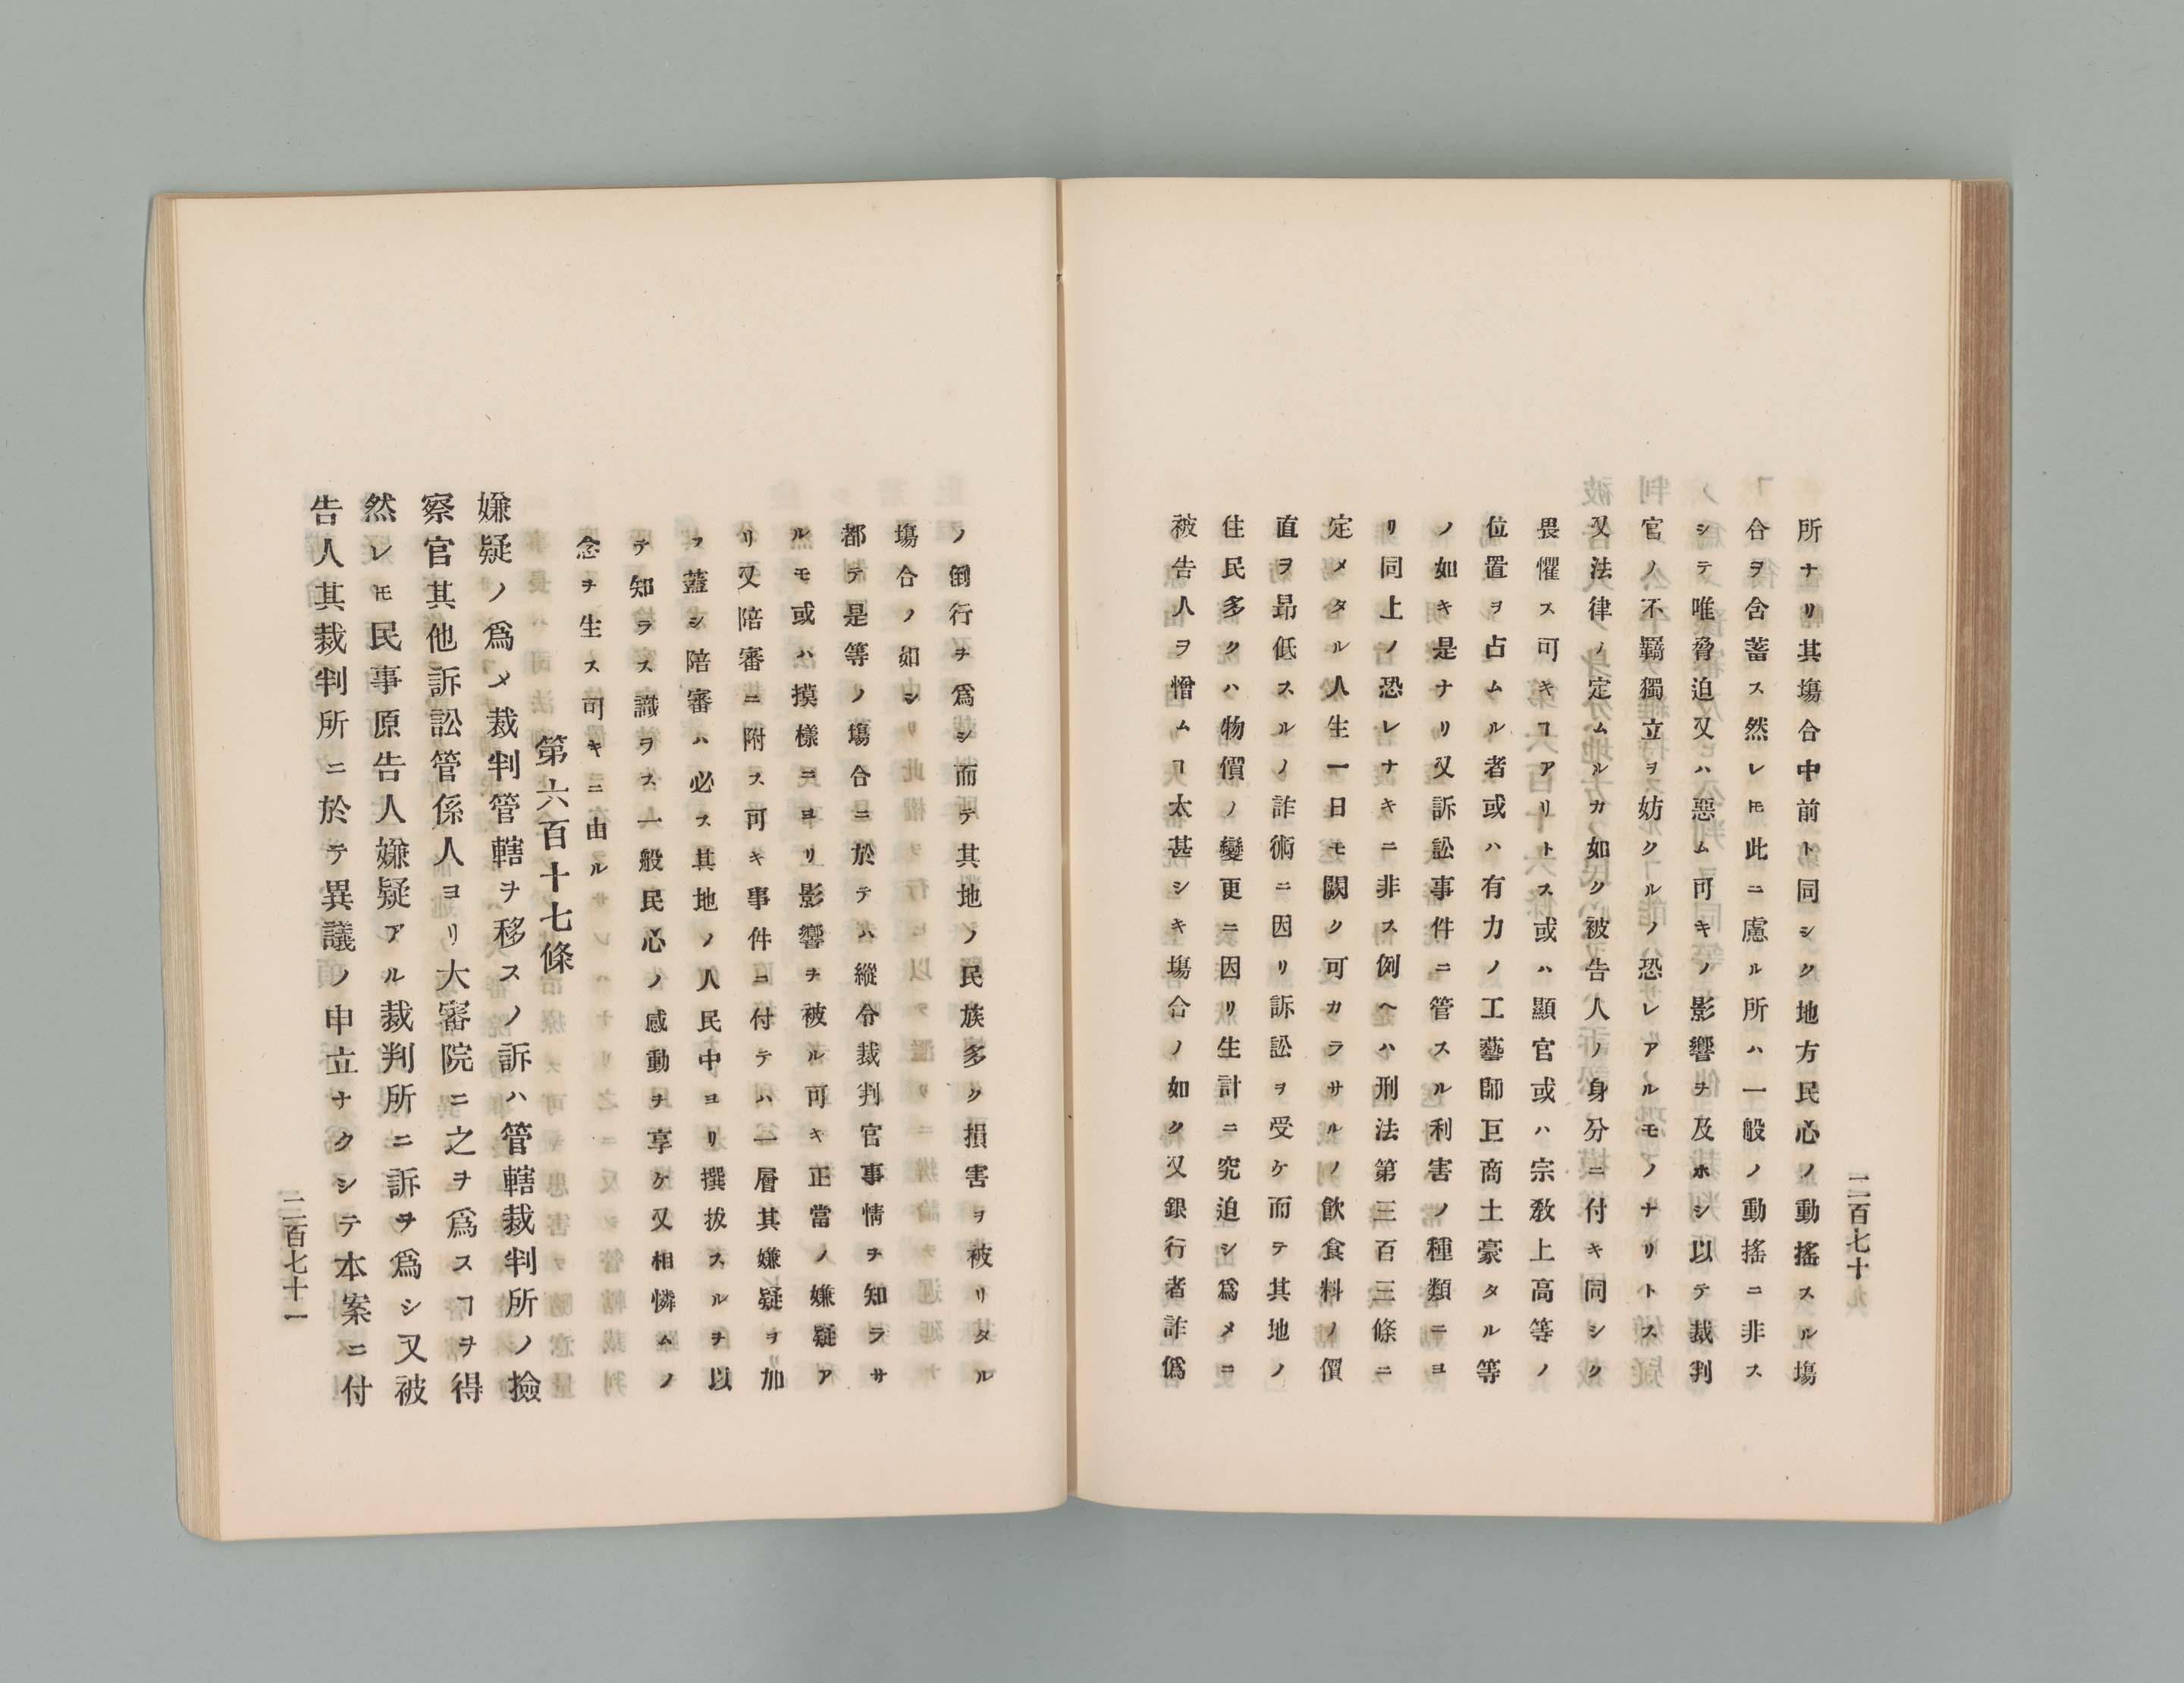 二百七十
所ナリ其塲合中前ト同シク地方民心ノ動搖スル塲
合ヲ含蓄ス然レ𪜈此ニ慮ル所ハ一般ノ動搖ニ非ス
シテ唯脅迫又ハ惡ム可キノ影響ヲ及ホシ以テ裁判
官ノ不羈獨立ヲ妨クルノ恐レアルモノナリトス
又法律ノ定ムルカ如ク被告人ノ身分ニ付キ同シク
畏懼ス可キヿアリトス或ハ顯官或ハ宗教上高等ノ
位置ヲ占ムル者或ハ有力ノ工藝師巨商土豪タル等
ノ如キ是ナリ又訴訟事件ニ管スル利害ノ種類ニヨ
リ同上ノ恐レナキニ非ス例ヘハ刑法第三百三條ニ
定メタル人生一日モ闕ク可カラサルノ飲食料ノ價
直ヲ昻低スルノ詐術ニ因リ訴訟ヲ受ケ而テ其地ノ
住民多クハ物價ノ變更ニ因リ生計ニ究迫シ爲メニ
被告人ヲ憎ムヿ太甚シキ塲合ノ如ク又銀行者詐僞
ノ倒行ヲ爲シ而テ其地ノ民族多ク損害ヲ被リタル
塲合ノ如シ
都テ是等ノ塲合ニ於テハ縱令裁判官事情ヲ知ラサ
ルモ或ハ摸樣ニヨリ影響ヲ被ル可キ正當ノ嫌疑ア
リ又陪審ニ附ス可キ事件ニ付テハ一層其嫌疑ヲ加
フ蓋シ陪審ハ必ス其地ノ人民中ヨリ撰拔スルヲ以
テ知ラス識ラス一般民心ノ感動ヲ享ケ又相憐ムノ
念ヲ生ス可キニ由ル
第六百十七條
嫌疑ノ爲メ裁判管轄ヲ移スノ訴ハ管轄裁判所ノ撿
察官其他訴訟管係人ヨリ大審院ニ之ヲ爲スヿヲ得
然レ𪜈民事原告人嫌疑アル裁判所ニ訴ヲ爲シ又被
告人其裁判所ニ於テ異議ノ申立ナクシテ本案ニ付
二百七十一